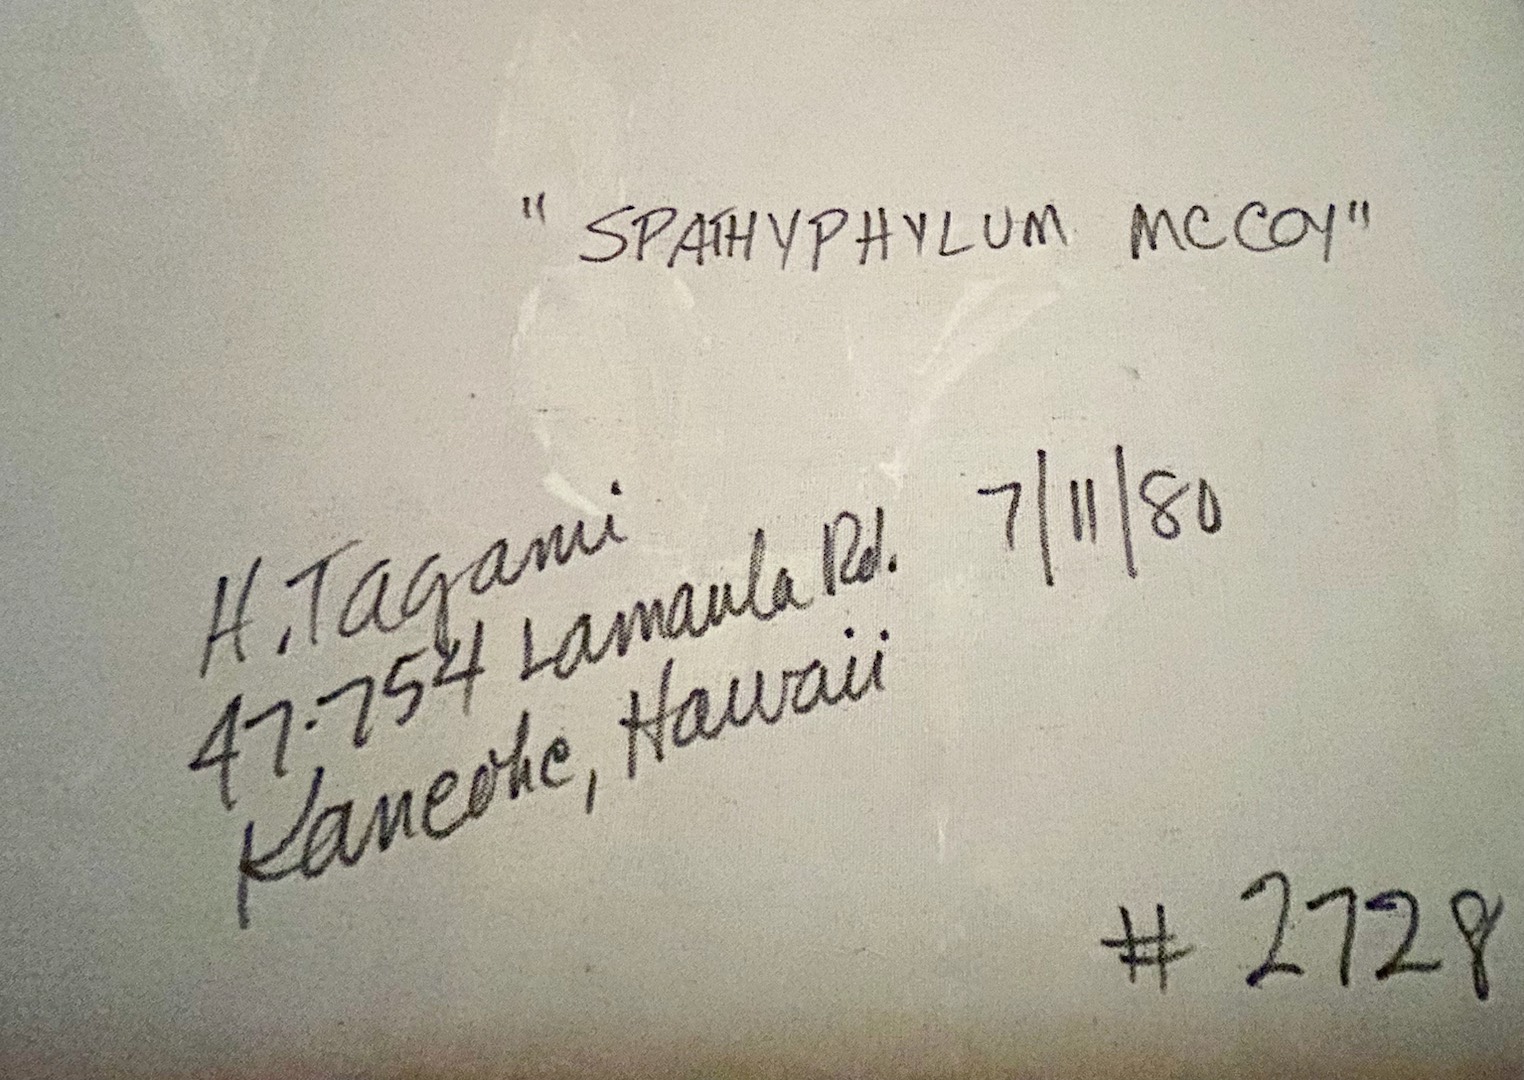 "SPATHYPHYLUM MCCOY"
H. Tagami
7/11/80
47-754 Lamaula Rd.
Kaneohe, Hawaii
# 2728